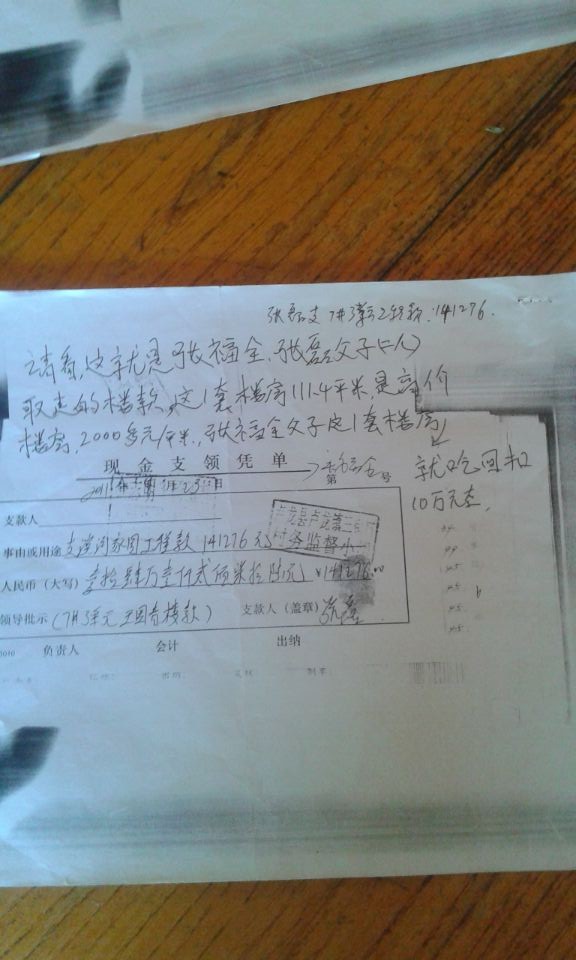 张磊支 7# 3单元 工程款:141276.
请看,这就是张福全,张磊父子(二人)
取走的楼款,这1套楼房111.4平米,是高价
楼房,2000多元/平米,张福全父子这1套楼房
就吃回扣
10万元左.
现金支领凭单
第 号
支款人
事由或用途 支 家园工程款 141276元
卢龙县卢龙镇
务监督小
人民币(大写) 壹拾肆万壹仟贰佰柒拾陆元 ¥141276.00
领导批示 (7# 3单元 楼款) 支款人(盖章) 张磊
负责人 会计 出纳